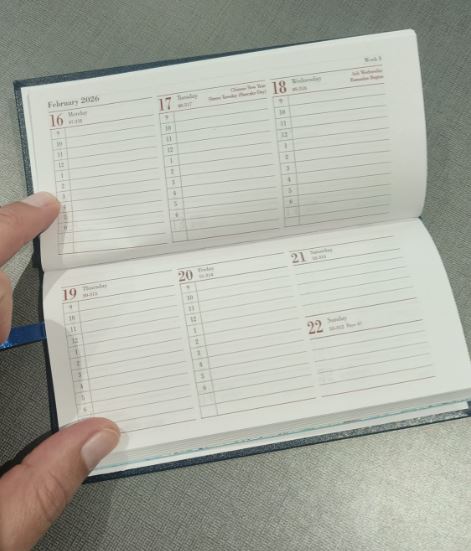 February 2026
Week 8
16 Monday
47-318
9
10
11
12
1
2
3
4
5
6
17 Tuesday
48-317
Chinese New Year
Shrove Tuesday (Pancake Day)
9
10
11
12
1
2
3
4
5
6
18 Wednesday
49-316
Ash Wednesday
Ramadan Begins
9
10
11
12
1
2
3
4
5
6
19 Thursday
50-315
9
10
11
12
1
2
3
4
5
6
20 Friday
51-314
9
10
11
12
1
2
3
4
5
6
21 Saturday
52-313
22 Sunday
53-312